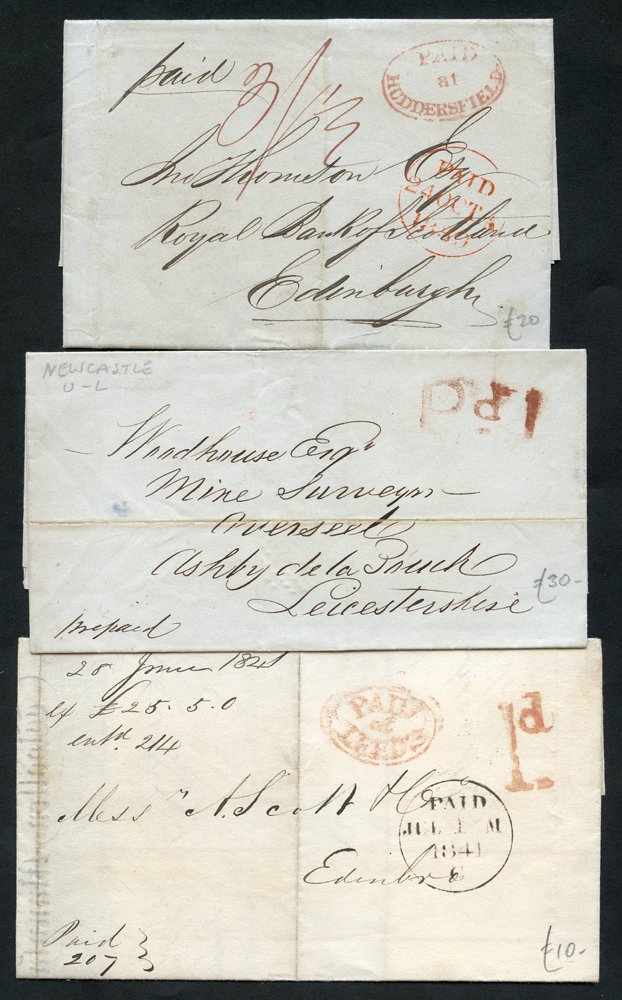 paid
3/3
PAID
at
HUDDERSFIELD
PAID
24 OCT
Jno Thomson Esqr
Royal Bank of Scotland
Edinburgh
£20
NEWCASTLE
U-L
Pd 1
Woodhouse Esqr
Mine Surveyor
Overseel
Ashby de la Zouch
Leicestershire
£30-
Prepaid
28 June 1841
of £25.5.0
entd 214
PAID
at
LEEDS
1d
Messrs A. Scott & Co
PAID
JUL 1 M
1841
Edinbro
Paid
207
£10-